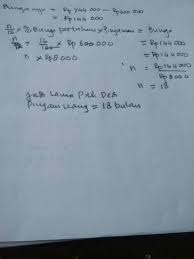 Bunganya = Rp 744 000 - Rp 600 000
= Rp 144 000
n/12 × % Bunga pertahun × Pinjaman = Bunga
n/12 × 16/100 × Rp 600 000 = Rp 144 000
n × Rp 8000 = Rp 144 000
n = Rp 144 000 / Rp 8000
n = 18
Jadi Lama Pak Ded
Pinjam uang = 18 bulan